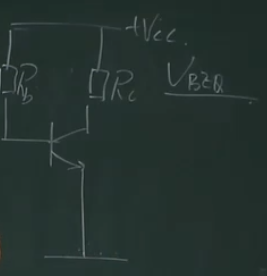 +Vcc.
Rb Rc VBEQ